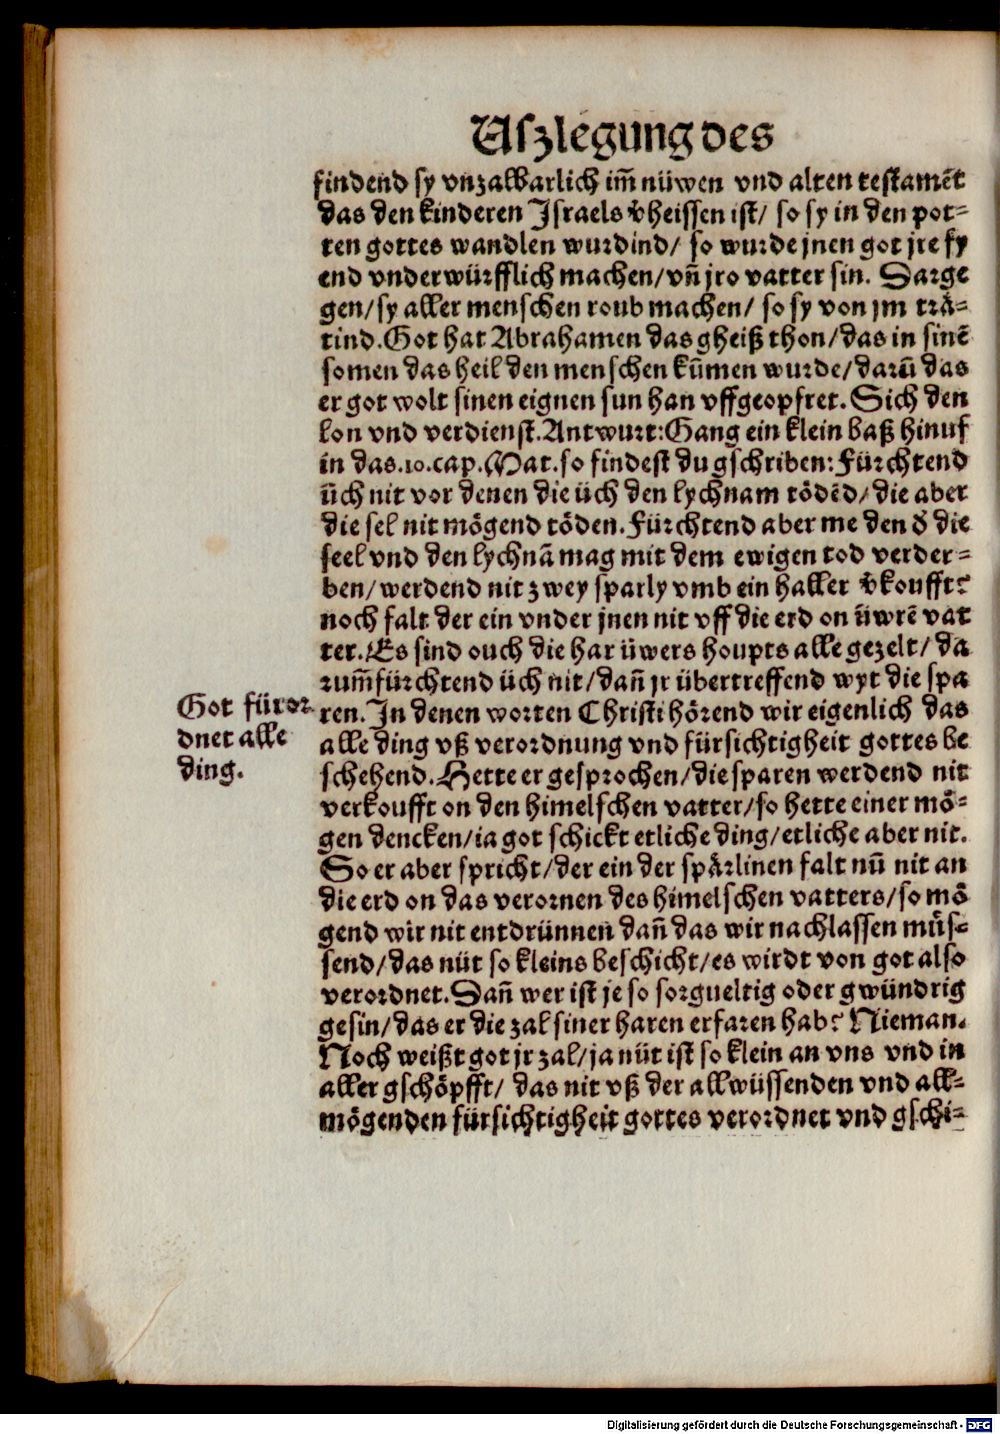 Uszlegung des
findend sy vnzalbarlich im̄ nüwen vnd alten testamēt
das den kinderen Israels v̄heissen ist/ so sy in den pot-
ten gottes wandlen wurdind/ so wurde jnen got jre fy
end vnderwürfflich machen/vn̄ jro vatter sin. Darge
gen/sy aller menschen roub machen/ so sy von jm trå-
tind.Got hat Abrahamen das gheiß thon/das in sinē
somen das heil den menschen kūmen wurde/darū das
er got wolt sinen eignen sun han vffgeopfret.Sich den
lon vnd verdienst.Antwurt:Gang ein klein baß hinuf
in das.10.cap.Mat.so findest du gschriben:Fürchtend
üch nit vor denen die üch den lychnam tödēd/die aber
die sel nit mögend töden.Fürchtend aber me den d̄ die
seel vnd den lychnā mag mit dem ewigen tod verder-
ben/werdend nit zwey sparly vmb ein haller v̄koufft?
noch falt der ein vnder jnen nit vff die erd on üwrē vat
ter.Es sind ouch die har üwers houpts alle gezelt/da
rum̄fürchtend üch nit/dan̄ jr übertreffend wyt die spa
ren.In denen worten Christi hörend wir eigenlich das
alle ding vß verordnung vnd fürsichtigheit gottes be
schehend.Hette er gesprochen/die sparen werdend nit
verkoufft on den himelschen vatter/so hette einer mö-
gen dencken/ia got schickt etliche ding/etliche aber nit.
So er aber spricht/der ein der spårlinen falt nū nit an
die erd on das verornen des himelschen vatters/so mö
gend wir nit entdrünnen dan̄ das wir nachlassen müs-
send/das nüt so kleins beschicht/es wirdt von got also
verordnet.Dan̄ wer ist je so sorgueltig oder gwündrig
gesin/das er die zal siner haren erfaren hab? Nieman.
Noch weißt got jr zal/ja nüt ist so klein an vns vnd in
aller gschöpfft/ das nit vß der allwüssenden vnd all-
mögenden fürsichtigheit gottes verordnet vnd gschi-
Got füror
dnet alle
ding.
Digitalisierung gefördert durch die Deutsche Forschungsgemeinschaft - DFG